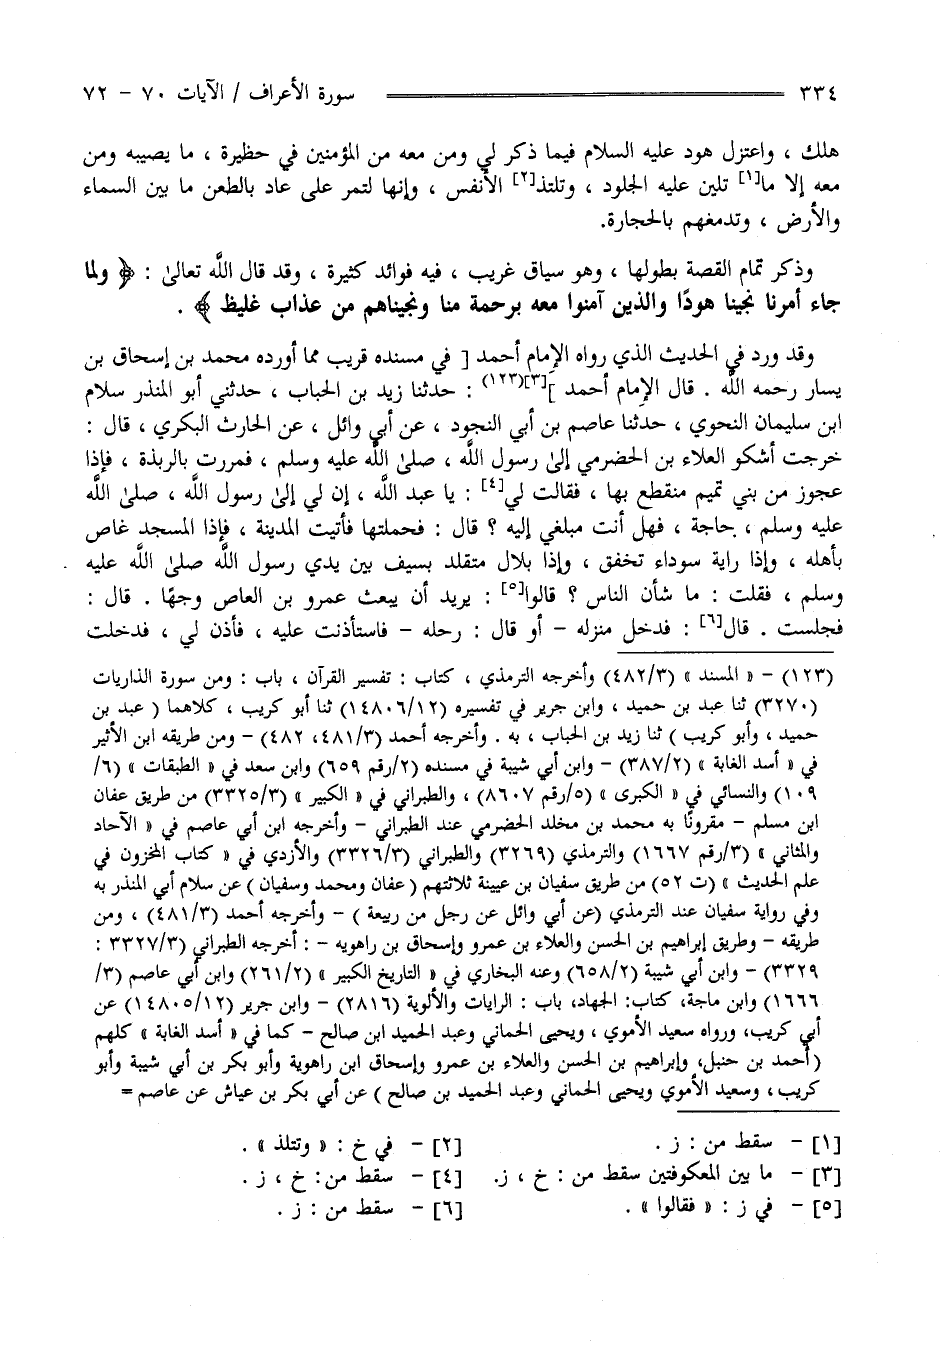 ٣٣٤ سورة الأعراف / الآيات ٧٠ - ٧٢
هلك ، واعتزل هود عليه السلام فيما ذكر لي ومن معه من المؤمنين في حظيرة ، ما يصيبه ومن
معه إلا ما[١] تلين عليه الجلود ، وتلتذ[٢] الأنفس ، وإنها لتمر على عاد بالطعن ما بين السماء
والأرض ، وتدمغهم بالحجارة.
وذكر تمام القصة بطولها ، وهو سياق غريب ، فيه فوائد كثيرة ، وقد قال الله تعالىٰ : ﴿ ولما
جاء أمرنا نجينا هودًا والذين آمنوا معه برحمة منا ونجيناهم من عذاب غليظ ﴾ .
وقد ورد في الحديث الذي رواه الإمام أحمد [ في مسنده قريب مما أورده محمد بن إسحاق بن
يسار رحمه الله . قال الإمام أحمد ][٣](١٢٣) : حدثنا زيد بن الحباب ، حدثني أبو المنذر سلام
ابن سليمان النحوي ، حدثنا عاصم بن أبي النجود ، عن أبي وائل ، عن الحارث البكري ، قال :
خرجت أشكو العلاء بن الحضرمي إلىٰ رسول الله ، صلىٰ الله عليه وسلم ، فمررت بالربذة ، فإذا
عجوز من بني تميم منقطع بها ، فقالت لي[٤] : يا عبد الله ، إن لي إلىٰ رسول الله ، صلىٰ الله
عليه وسلم ، حاجة ، فهل أنت مبلغي إليه ؟ قال : فحملتها فأتيت المدينة ، فإذا المسجد غاص
بأهله ، وإذا راية سوداء تخفق ، وإذا بلال متقلد بسيف بين يدي رسول الله صلىٰ الله عليه
وسلم ، فقلت : ما شأن الناس ؟ قالوا[٥] : يريد أن يبعث عمرو بن العاص وجهًا . قال :
فجلست . قال[٦] : فدخل منزله - أو قال : رحله - فاستأذنت عليه ، فأذن لي ، فدخلت
(١٢٣) - « المسند » (٤٨٢/٣) وأخرجه الترمذي ، كتاب : تفسير القرآن ، باب : ومن سورة الذاريات
(٣٢٧٠) ثنا عبد بن حميد ، وابن جرير في تفسيره (١٤٨٠٦/١٢) ثنا أبو كريب ، كلاهما ( عبد بن
حميد ، وأبو كريب ) ثنا زيد بن الحباب ، به . وأخرجه أحمد (٤٨١/٣، ٤٨٢) - ومن طريقه ابن الأثير
في « أسد الغابة » (٣٨٧/٢) - وابن أبي شيبة في مسنده (٢/رقم ٦٥٩) وابن سعد في « الطبقات » (٦/
١٠٩) والنسائي في « الكبرى » (٥/رقم ٨٦٠٧) ، والطبراني في « الكبير » (٣٣٢٥/٣) من طريق عفان
ابن مسلم - مقرونًا به محمد بن مخلد الحضرمي عند الطبراني - وأخرجه ابن أبي عاصم في « الآحاد
والمثاني » (٣/رقم ١٦٦٧) والترمذي (٣٢٦٩) والطبراني (٣٣٢٦/٣) والأزدي في « كتاب المخزون في
علم الحديث » (ت ٥٢) من طريق سفيان بن عيينة ثلاثتهم ( عفان ومحمد وسفيان ) عن سلام أبي المنذر به
وفي رواية سفيان عند الترمذي (عن أبي وائل عن رجل من ربيعة ) - وأخرجه أحمد (٤٨١/٣) ، ومن
طريقه - وطريق إبراهيم بن الحسن والعلاء بن عمرو وإسحاق بن راهويه - : أخرجه الطبراني (٣٣٢٧/٣ :
٣٣٢٩) - وابن أبي شيبة (٦٥٨/٢) وعنه البخاري في « التاريخ الكبير » (٢٦١/٢) وابن أبي عاصم (٣/
١٦٦٦) وابن ماجة، كتاب: الجهاد، باب : الرايات والألوية (٢٨١٦) - وابن جرير (١٤٨٠٥/١٢) عن
أبي كريب، ورواه سعيد الأموي ، ويحيى الحماني وعبد الحميد ابن صالح - كما في « أسد الغابة » كلهم
(أحمد بن حنبل، وإبراهيم بن الحسن والعلاء بن عمرو وإسحاق ابن راهوية وأبو بكر بن أبي شيبة وأبو
كريب ، وسعيد الأموي ويحيى الحماني وعبد الحميد بن صالح ) عن أبي بكر بن عياش عن عاصم =
[١] - سقط من : ز . [٢] - في خ : « وتتلذ » .
[٣] - ما بين المعكوفتين سقط من : خ ، ز. [٤] - سقط من: خ ، ز .
[٥] - في ز : « فقالوا » . [٦] - سقط من : ز .